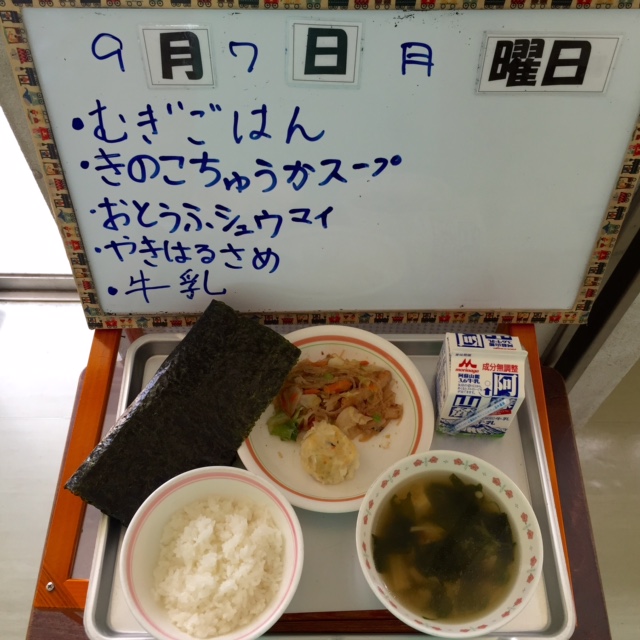 9月7日 月 曜日
・むぎごはん
・きのこちゅうかスープ
・おとうふシュウマイ
・やきはるさめ
・牛乳
成分無調整